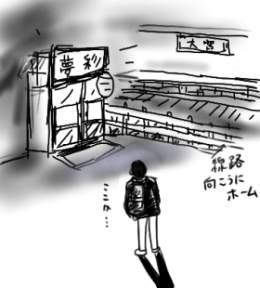 夢彩
大宮
線路
向こうに
ホーム
ここか…